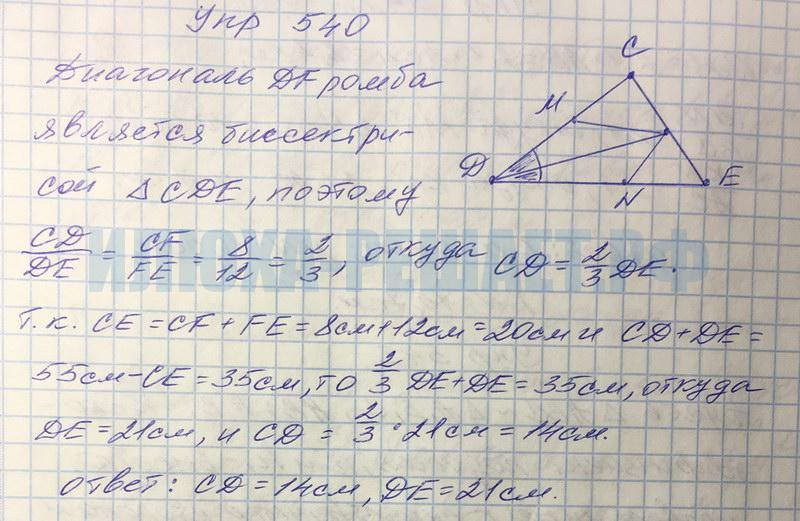 Упр 540
Диагональ DF ромба
является биссектри-
сой △CDE, поэтому
CD/DE = CF/FE = 8/12 = 2/3, откуда CD = 2/3 DE.
Т.к. CE = CF + FE = 8см+12см = 20см и CD + DE =
55см - CE = 35см, то 2/3 DE + DE = 35см, откуда
DE = 21см, и CD = 2/3 · 21см = 14см.
ответ: CD = 14см, DE = 21см.
C
M
D
E
N